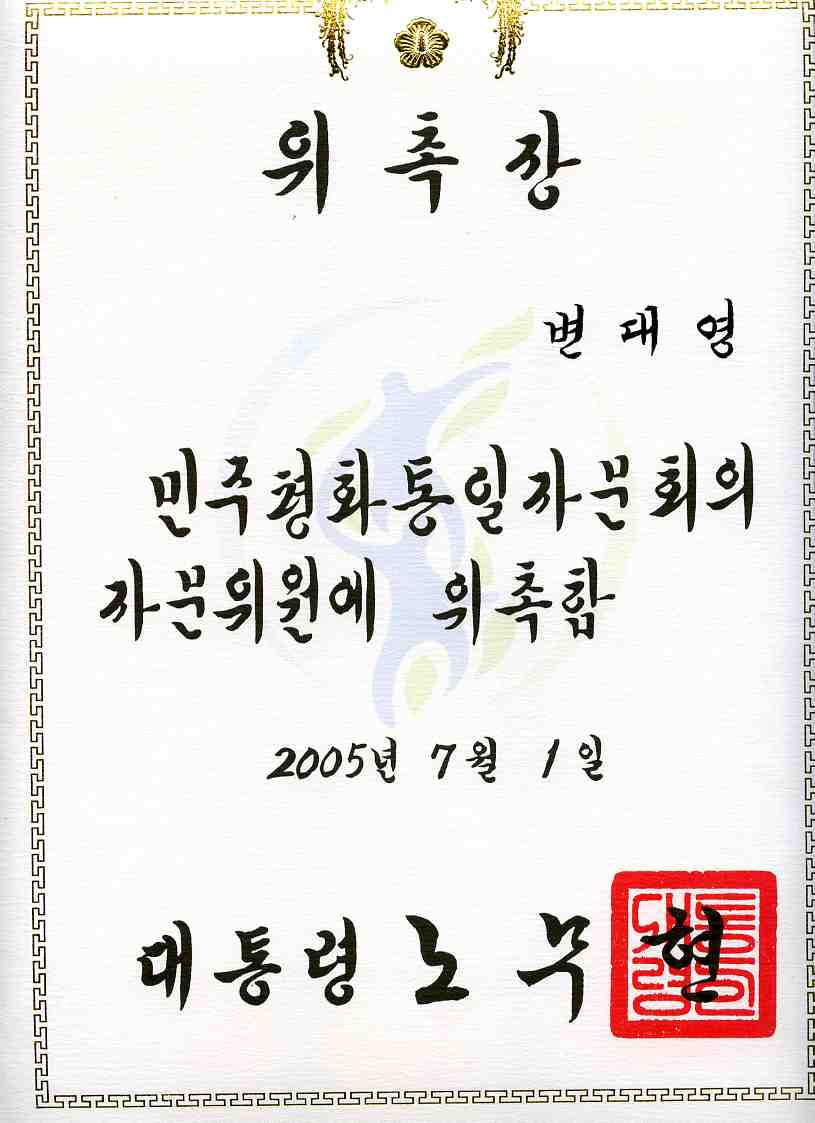 위촉장
변대영
민주평화통일자문회의
자문위원에 위촉함
2005년 7월 1일
대통령 노무현